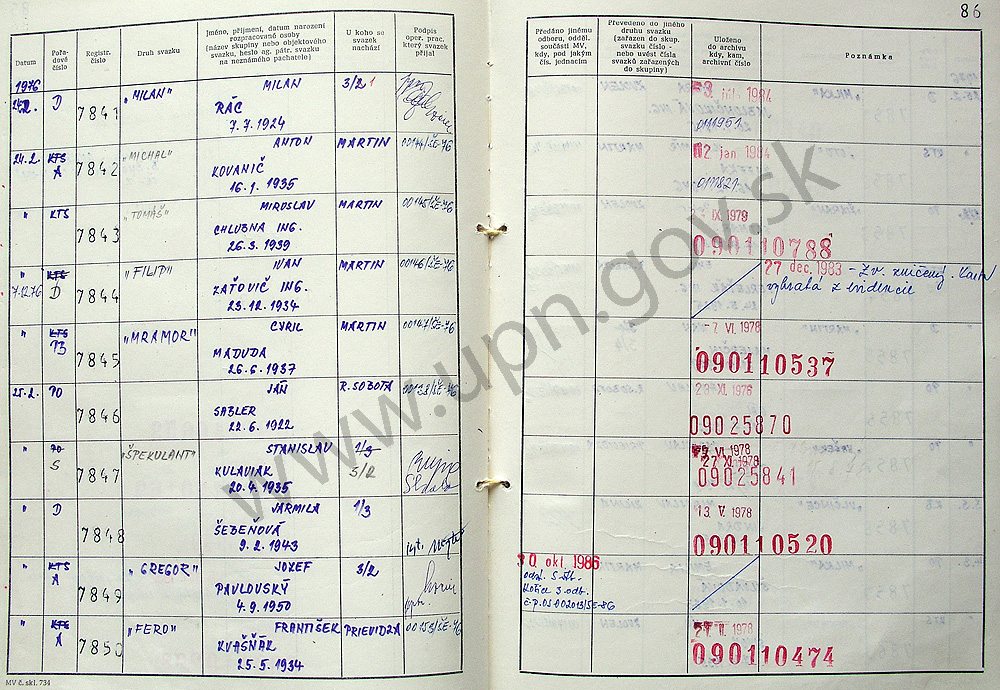 86
Datum
Pořadové číslo
Registr. číslo
Druh svazku
Jméno, příjmení, datum narození
rozpracované osoby
(název skupiny nebo objektového
svazku, heslo ag. pátr. svazku
na neznámého pachatele)
U koho se
svazek
nachází
Podpis
oper. prac.
který svazek
přijal
Předáno jinému
odboru, odděl.
součásti MV,
kdy, pod jakým
čís. jednacím
Převedeno do jiného
druhu svazku
(zařazen do skup.
svazku číslo -
nebo uvést čísla
svazků zařazených
do skupiny)
Uloženo
do archivu
kdy, kam,
archivní číslo
Poznámka
1976
D 7841 „MILAN" MILAN 3/2
RÁC
7.7.1924
0111951
24.2. KTS 7842 „MICHAL" ANTON MARTIN 00144/ŠE-76 jan 1984
A KOVANIČ
16.1. 1935
" KTS 7843 „TOMÁŠ" MIROSLAV MARTIN 00145/ŠE-76 IX. 1979
CHLUBNA ING.
26.3.1939
090110788
" KTS 7844 „FILIP" IVAN MARTIN 00146/ŠE-76 27 dec. 1983 - Zv. zničený.
7.12.76 D ZAŤOVIČ ING. vybratá z evidencie
23.12.1934
" KTS 7845 „MRAMOR" CYRIL MARTIN 00147/ŠE-76 -7 VI. 1978
MADUDA
26.6.1937
090110537
25.2. PO 7846 JÁN R. SOBOTA
SABLER
22.6.1922
09025870
" PO 7847 „ŠPEKULANT" STANISLAV 1/3 VI. 1978
S KULAVIAK 5/2 27 XI. 1978
20.4.1935
09025841
" D 7848 JARMILA 1/3 13 V. 1978
ŠEBEŇOVÁ
9.2.1943
090110520
" KTS 7849 „GREGOR" JOZEF 3/2 30 okt. 1986
A PAVLOVSKÝ
4.9.1950
" KTS 7850 „FERO" FRANTIŠEK PRIEVIDZA 00153/ŠE-76 1978
A KVAŠŇÁK
25.5.1934
090110474
MV č. skl. 734
www.upn.gov.sk